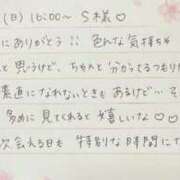 (日) 16:00〜 S様♡
にありがとう :: 色んな気持ちや
と思うけど、ちゃんと分かってるつもり
素直になれないときもあるけど…そ
多めに見てくれると嬉しいな♡
次会える日も 特別な時間にて